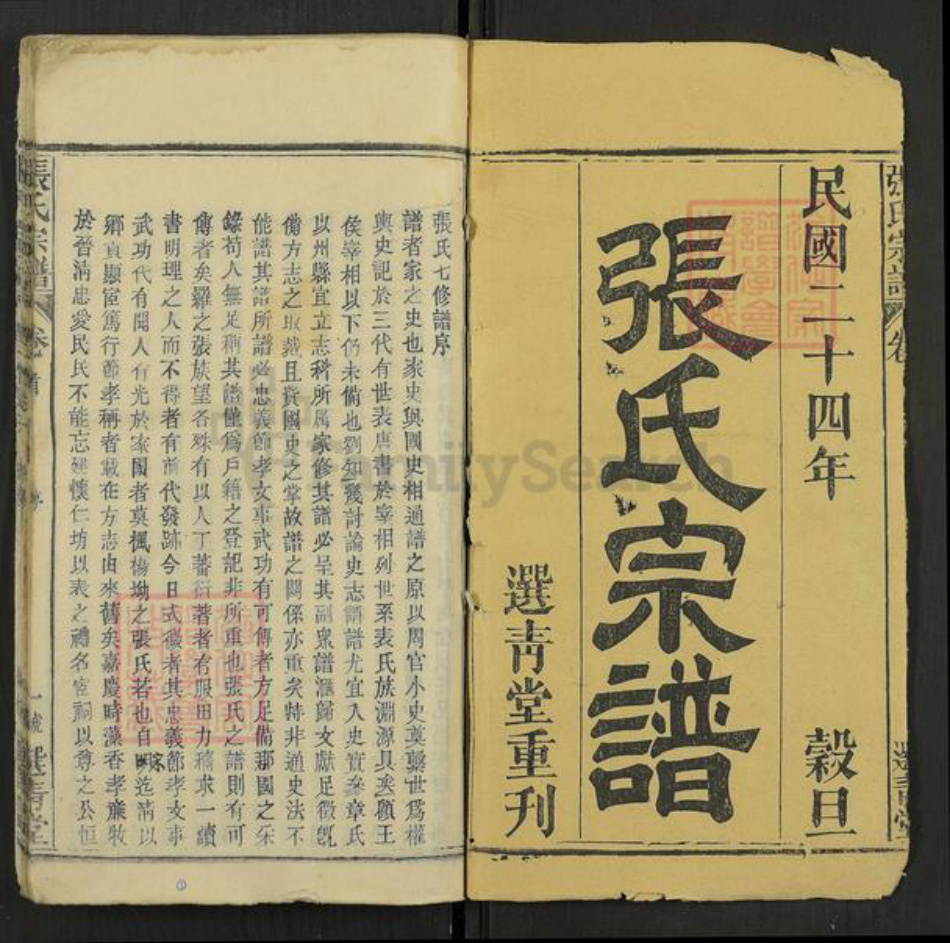 張氏宗譜 卷
選青堂
民國二十四年 穀旦
張氏宗譜
選青堂重刊
張氏七修譜序
譜者家之史也家史與國史相通譜之原以周官小史奠繫世爲權
輿史記於三代有世表唐書於宰相列世系表氏族淵源具矣顧王
侯宰相以下仍未備也劉知幾討論史志謂譜尤宜入史實參章氏
以州縣宜立志科所屬家修其譜必呈其副眾譜滙歸文獻足徵旣
備方志之取裁且資國史之掌故譜之關係亦重矣特非通史法不
能譜其譜所譜必忠義節孝文事武功有可傳者方足備郡國之采
錄苟人無足稱其譜僅爲戶籍之登記非所重也張氏之譜則有可
傳者矣羅之張族望各殊有以人丁蕃衍著者有服田力穡求一讀
書明理之人而不得者有前代發跡今日式微者其忠義節孝文事
武功代有聞人有光於家國者莫楓楊坳之張氏若也自宋迄淸以
鄉賢顯宦篤行節孝稱者載在方志由來舊矣嘉慶時藻香孝亷牧
於晉淸忠愛民民不能忘建懷仁坊以表之禱名宦祠以尊之公恒
張氏宗譜
卷首
序
一
選青堂
FamilySearch